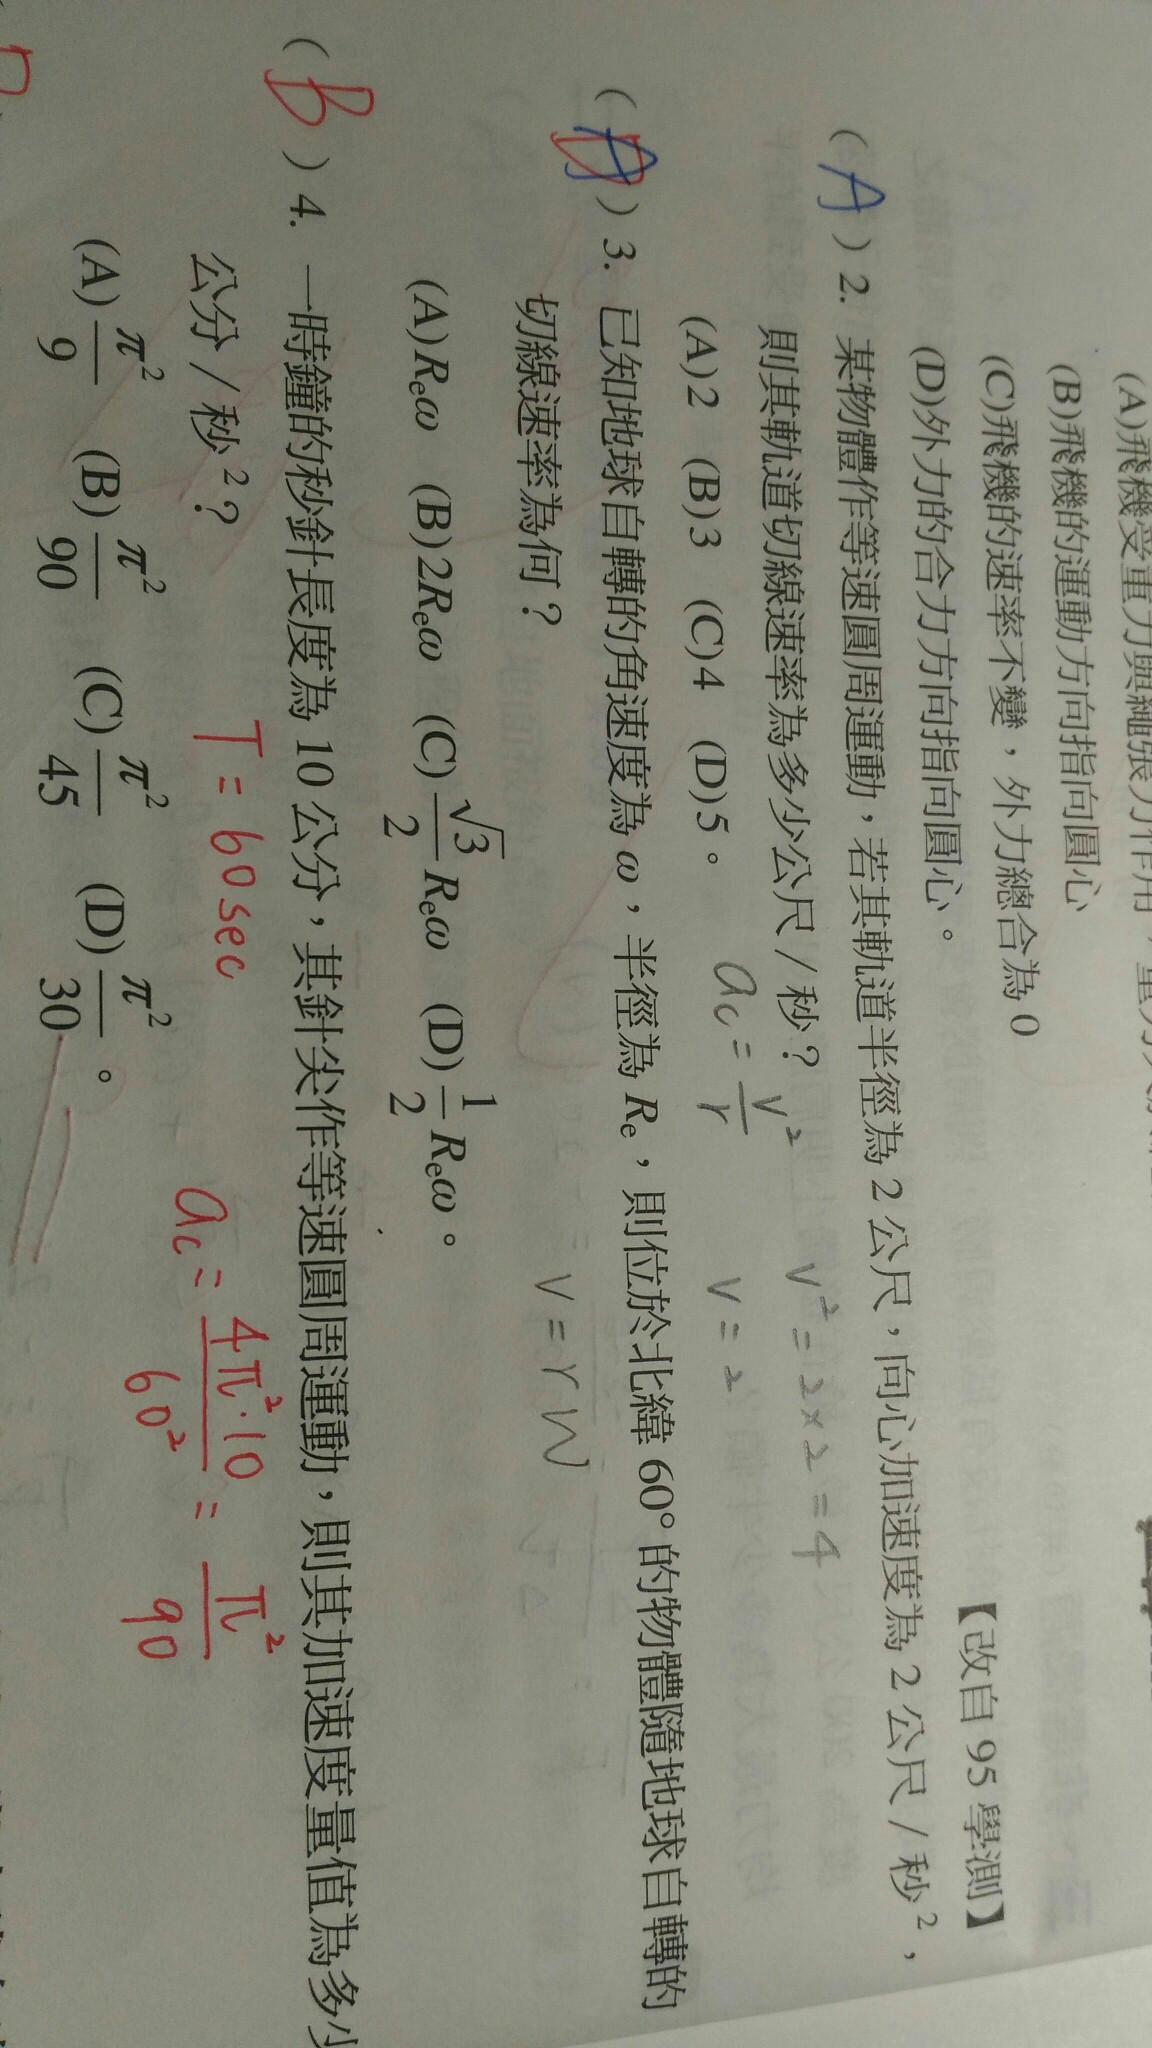 (A)飛機受重力與繩張力作用，重力
(B)飛機的運動方向指向圓心
(C)飛機的速率不變，外力總合為 0
(D)外力的合力方向指向圓心。
【改自 95 學測】
( A ) 2. 某物體作等速圓周運動，若其軌道半徑為 2 公尺，向心加速度為 2 公尺／秒²，
則其軌道切線速率為多少公尺／秒？
v² = 2×2 = 4
(A)2 (B)3 (C)4 (D)5。
ac = v²/r
v = 2
( D ) 3. 已知地球自轉的角速度為 ω，半徑為 Re，則位於北緯 60° 的物體隨地球自轉的
切線速率為何？
v = rw
(A)Reω (B)2Reω (C)√3/2 Reω (D)1/2 Reω。
( B ) 4. 一時鐘的秒針長度為 10 公分，其針尖作等速圓周運動，則其加速度量值為多少
公分／秒²？
T = 60 sec
ac = 4π²·10/60² = π²/90
(A)π²/9 (B)π²/90 (C)π²/45 (D)π²/30。